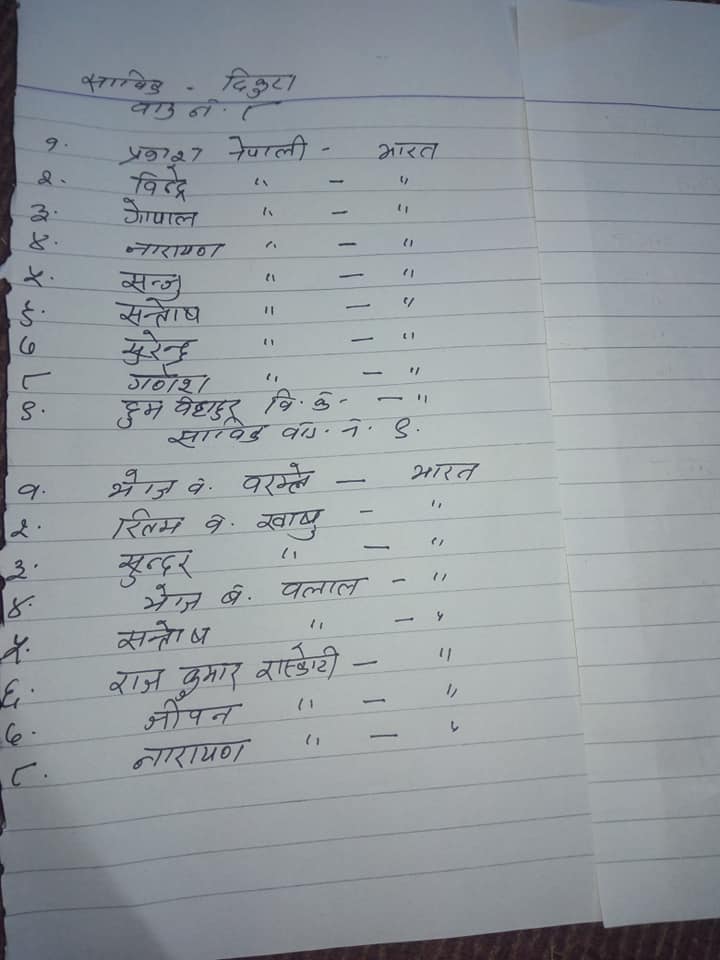 साविक - दिकुरा
वाड नं. ८
१. प्रकाश नेपाली - भारत
२. विरेन्द्र " - "
३. गोपाल " - "
४. नारायण " - "
५. सन्जु " - "
६. सन्तोष " - "
७ सुरेन्द्र " - "
८ गणेश " - "
९. डुम वहादुर वि. क. - "
साविक वा. नं. ९.
१. भोज व. घरम्ले - भारत
२. रितम व. खाषु - "
३. सुन्दर " - "
४. भोज बं. पलाल - "
५. सन्तोष " - "
६. राज कुमार रास्कोटी - "
७. जीवन " - "
८. नारायण " - "